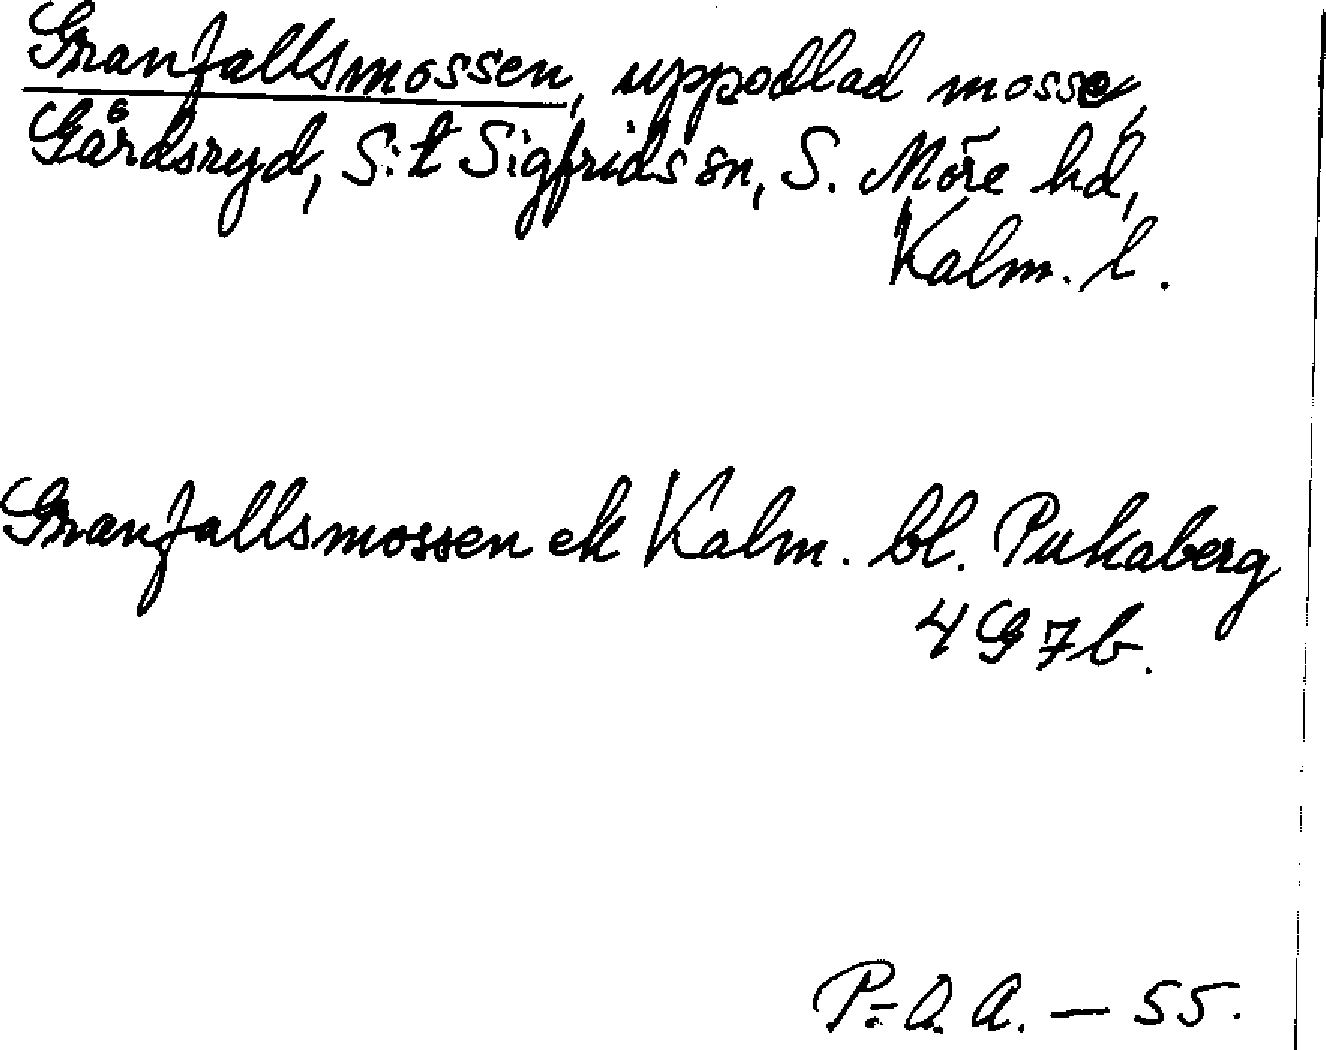 Granfallsmossen, uppodlad mosse,
Gårdsryd, S:t Sigfrids sn, S. Möre hd,
Kalm. l.
Granfallsmossen ek Kalm. bl. Pukaberg
4G7b.
P:O.A. — 55.